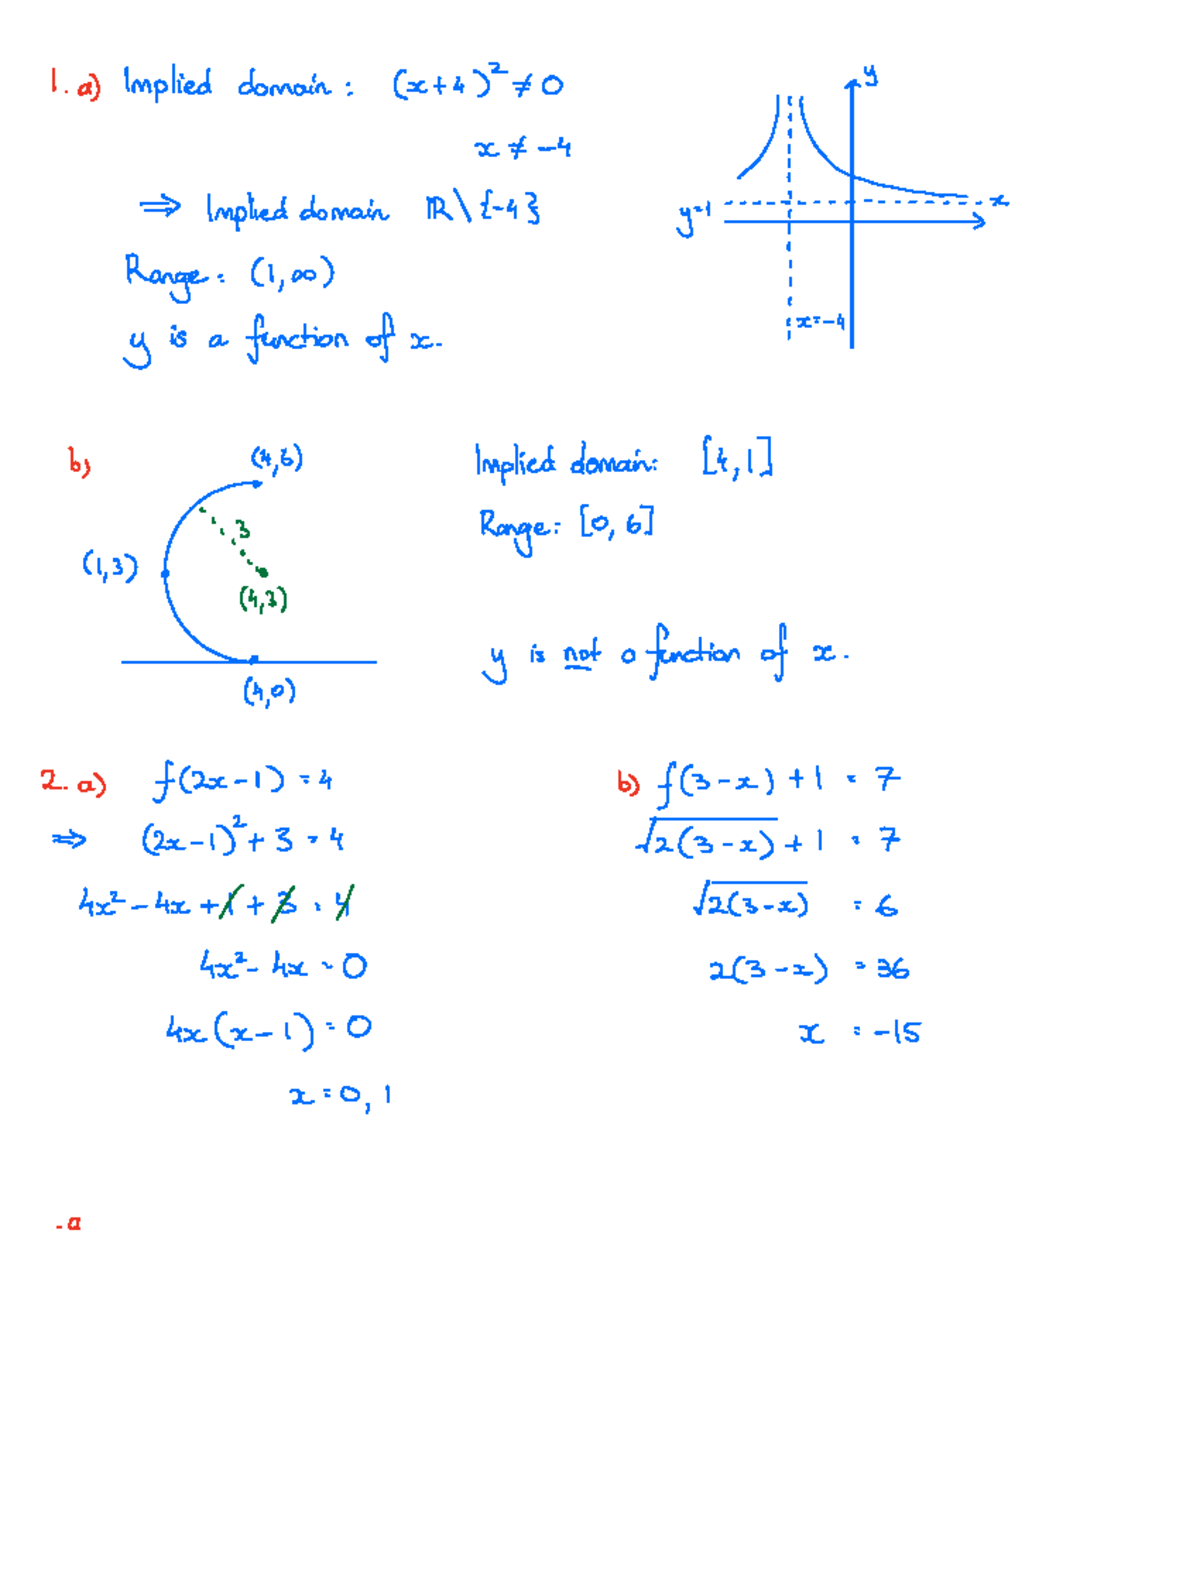 1. a) Implied domain: (x+4)² ≠ 0
x ≠ -4
⇒ Implied domain ℝ\{-4}
Range: (1,∞)
y is a function of x.
y
x
y=1
x=-4
b)
(4,6)
3
(1,3)
(4,3)
(4,0)
Implied domain: [4,1]
Range: [0,6]
y is not a function of x.
2. a) f(2x-1) = 4
⇒ (2x-1)² + 3 = 4
4x² - 4x + 1 + 3 = 4
4x² - 4x = 0
4x(x-1) = 0
x = 0, 1
b) f(3-x) + 1 = 7
√2(3-x) + 1 = 7
√2(3-x) = 6
2(3-x) = 36
x = -15
.a